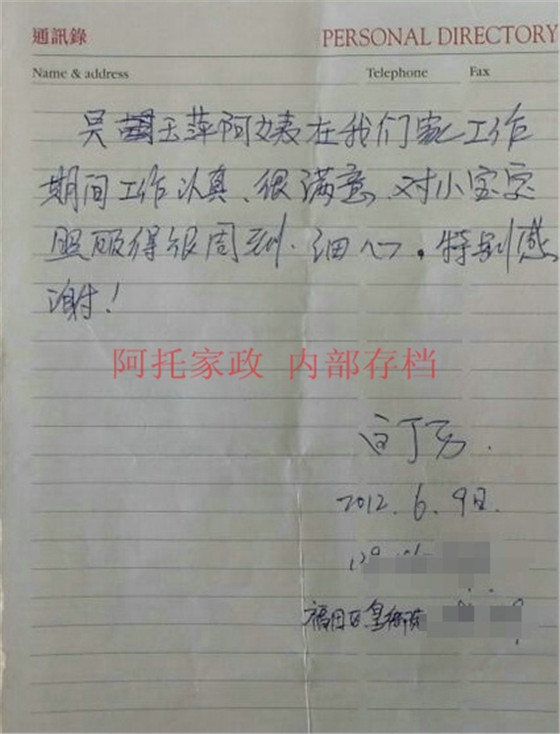 通訊錄 PERSONAL DIRECTORY
Name & address Telephone Fax
吴玉萍阿姨在我们家工作
期间工作认真、很满意、对小宝宝
照顾得很周到、细心，特别感
谢！
阿托家政 内部存档
2012.6.9日.
福田区皇